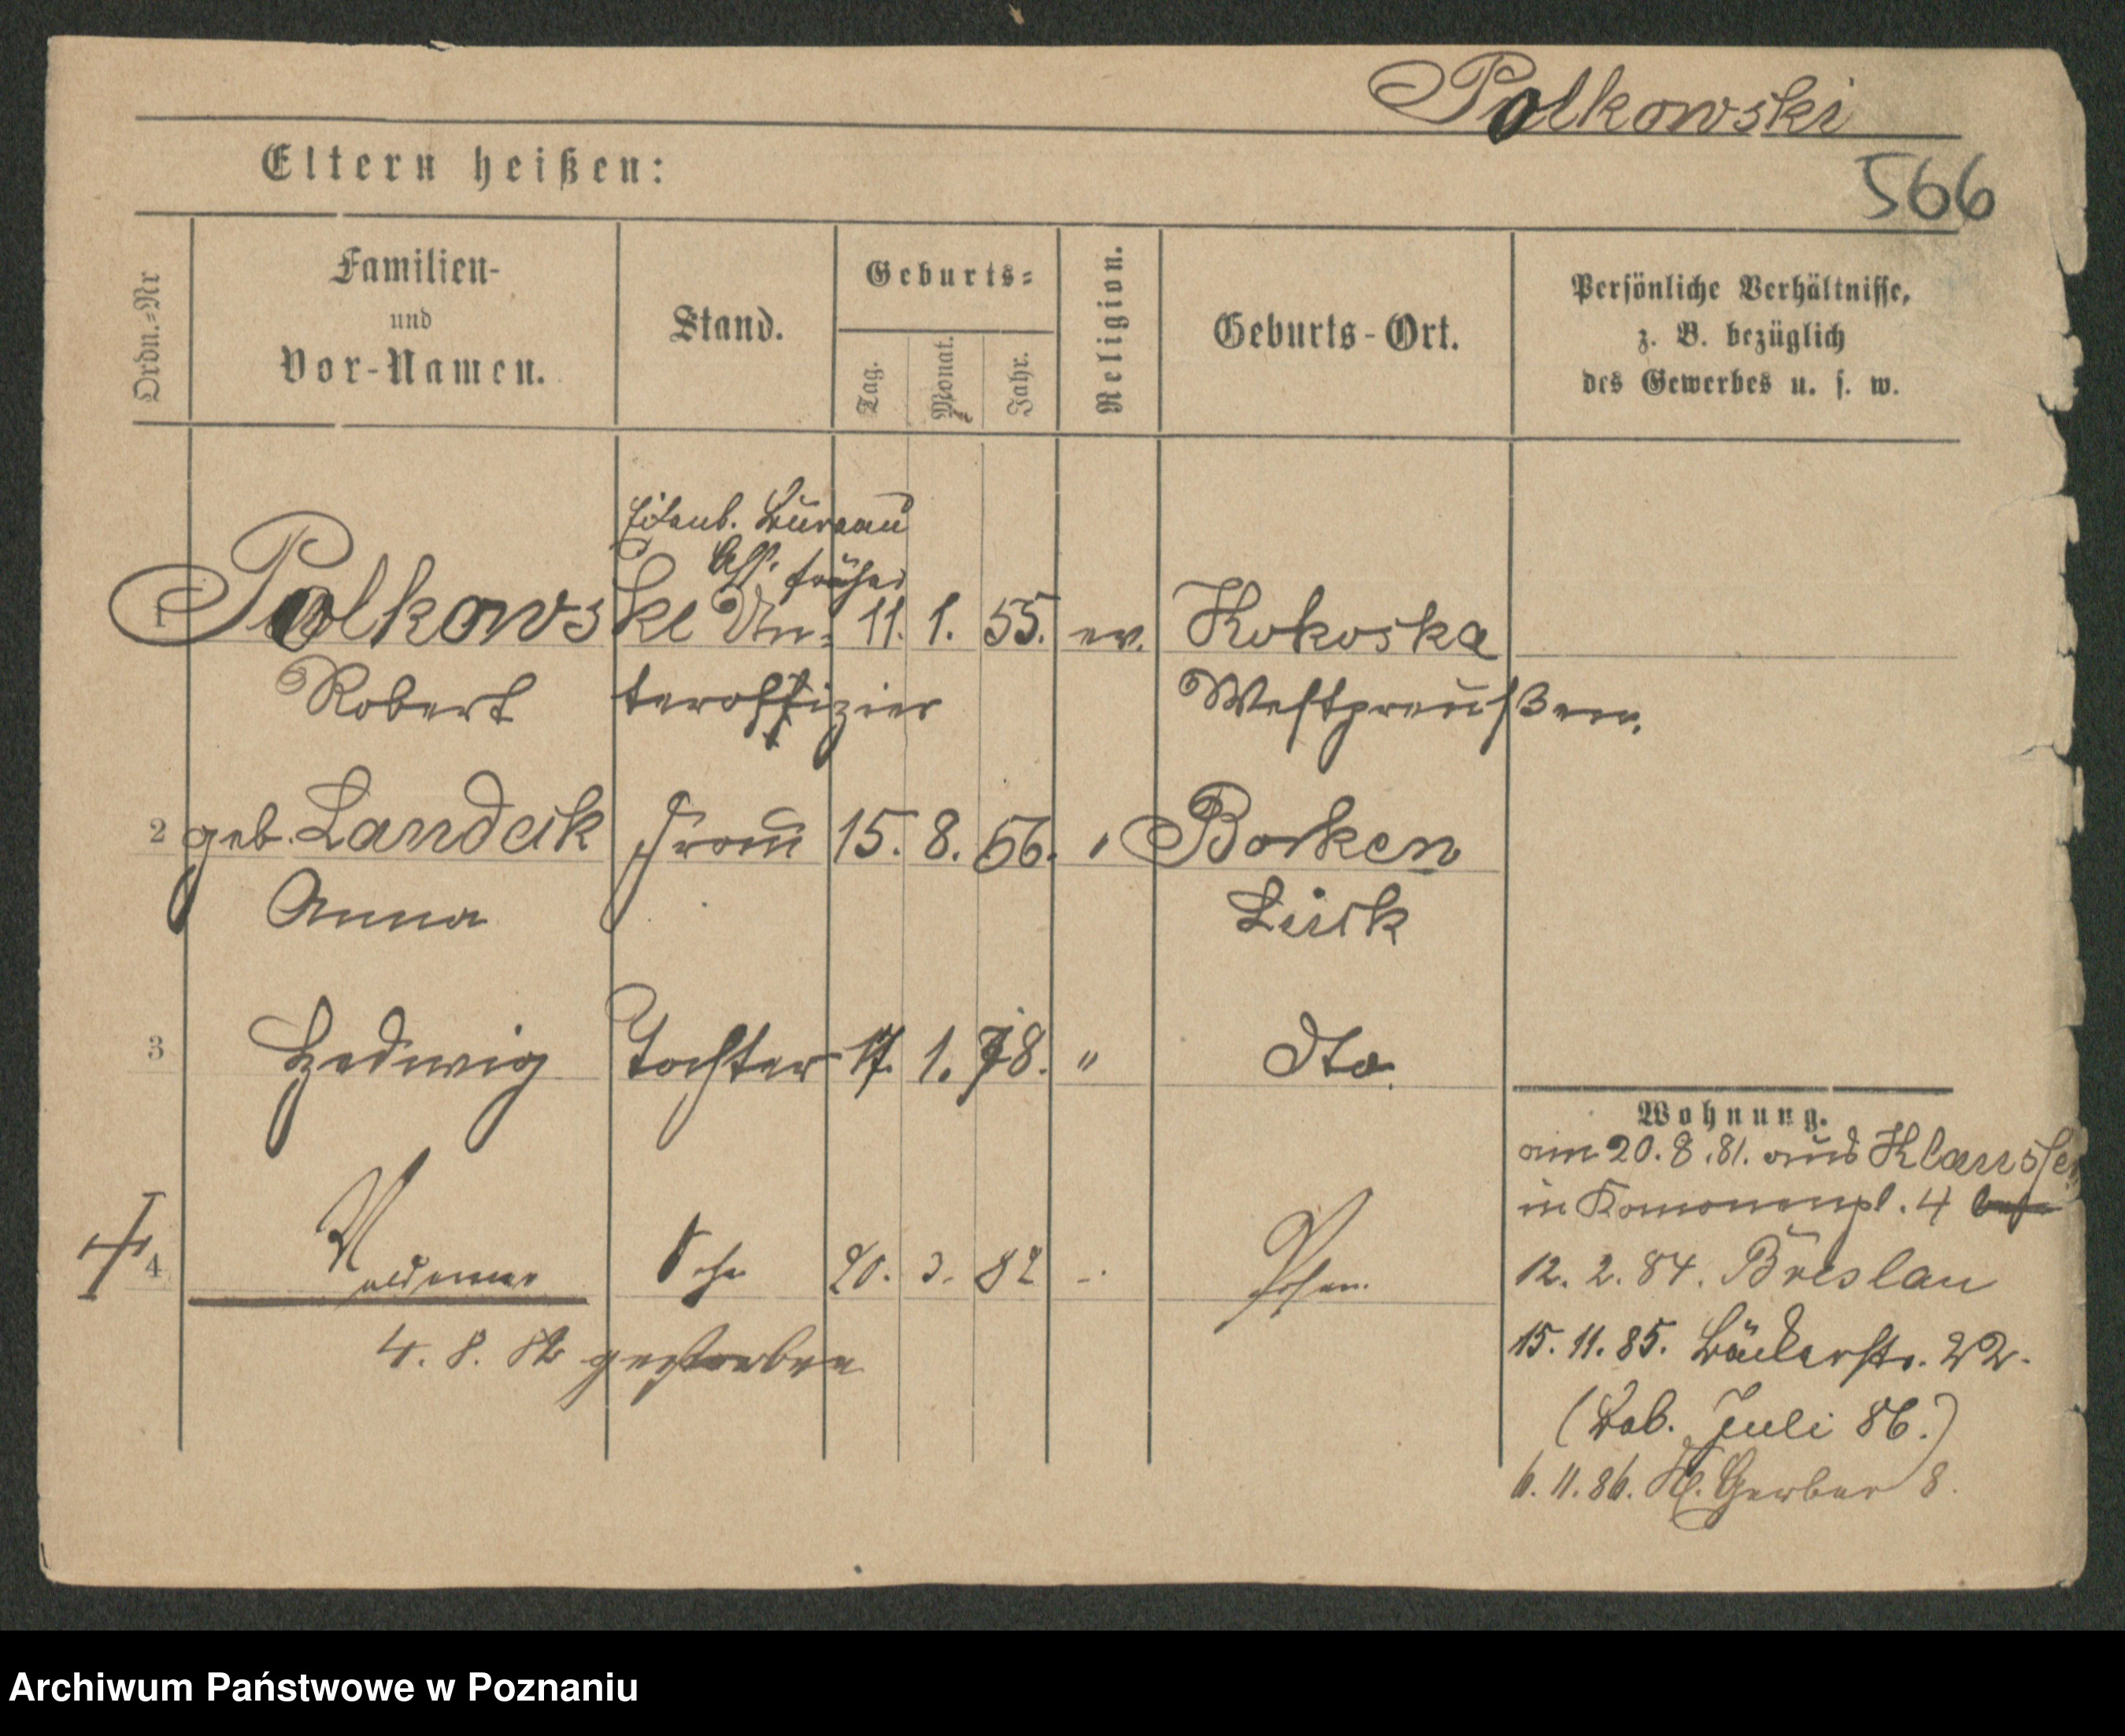 Polkowski
566
Eltern heißen:
Ordn.-Nr
Familien-
und
Vor-Namen.
Stand.
Geburts-
Tag.
Monat.
Jahr.
Religion.
Geburts-Ort.
Persönliche Verhältnisse,
z. B. bezüglich
des Gewerbes u. s. w.
Eisenb. Bureau
Ass. früher
1 Polkowski Un- 11. 1. 55. ev. Kokoska
Robert teroffizier Westpreußen.
2 geb. Landeck Frau 15. 8. 56. " Borken
Anna Lück
3 Hedwig Tochter 17. 1. 78. " dto.
Wohnung.
am 20.8.81. aus Klaussen
in Kanonenpl. 4
4 Waldemar Sohn 20. 3. 82 " Posen.
12. 2. 84. Breslau
4. 8. 82 gestorben
15. 11. 85. Bäckerstr. 22.
(Deb. Juli 86.)
6. 11. 86. Kl. Gerber 8.
Archiwum Państwowe w Poznaniu